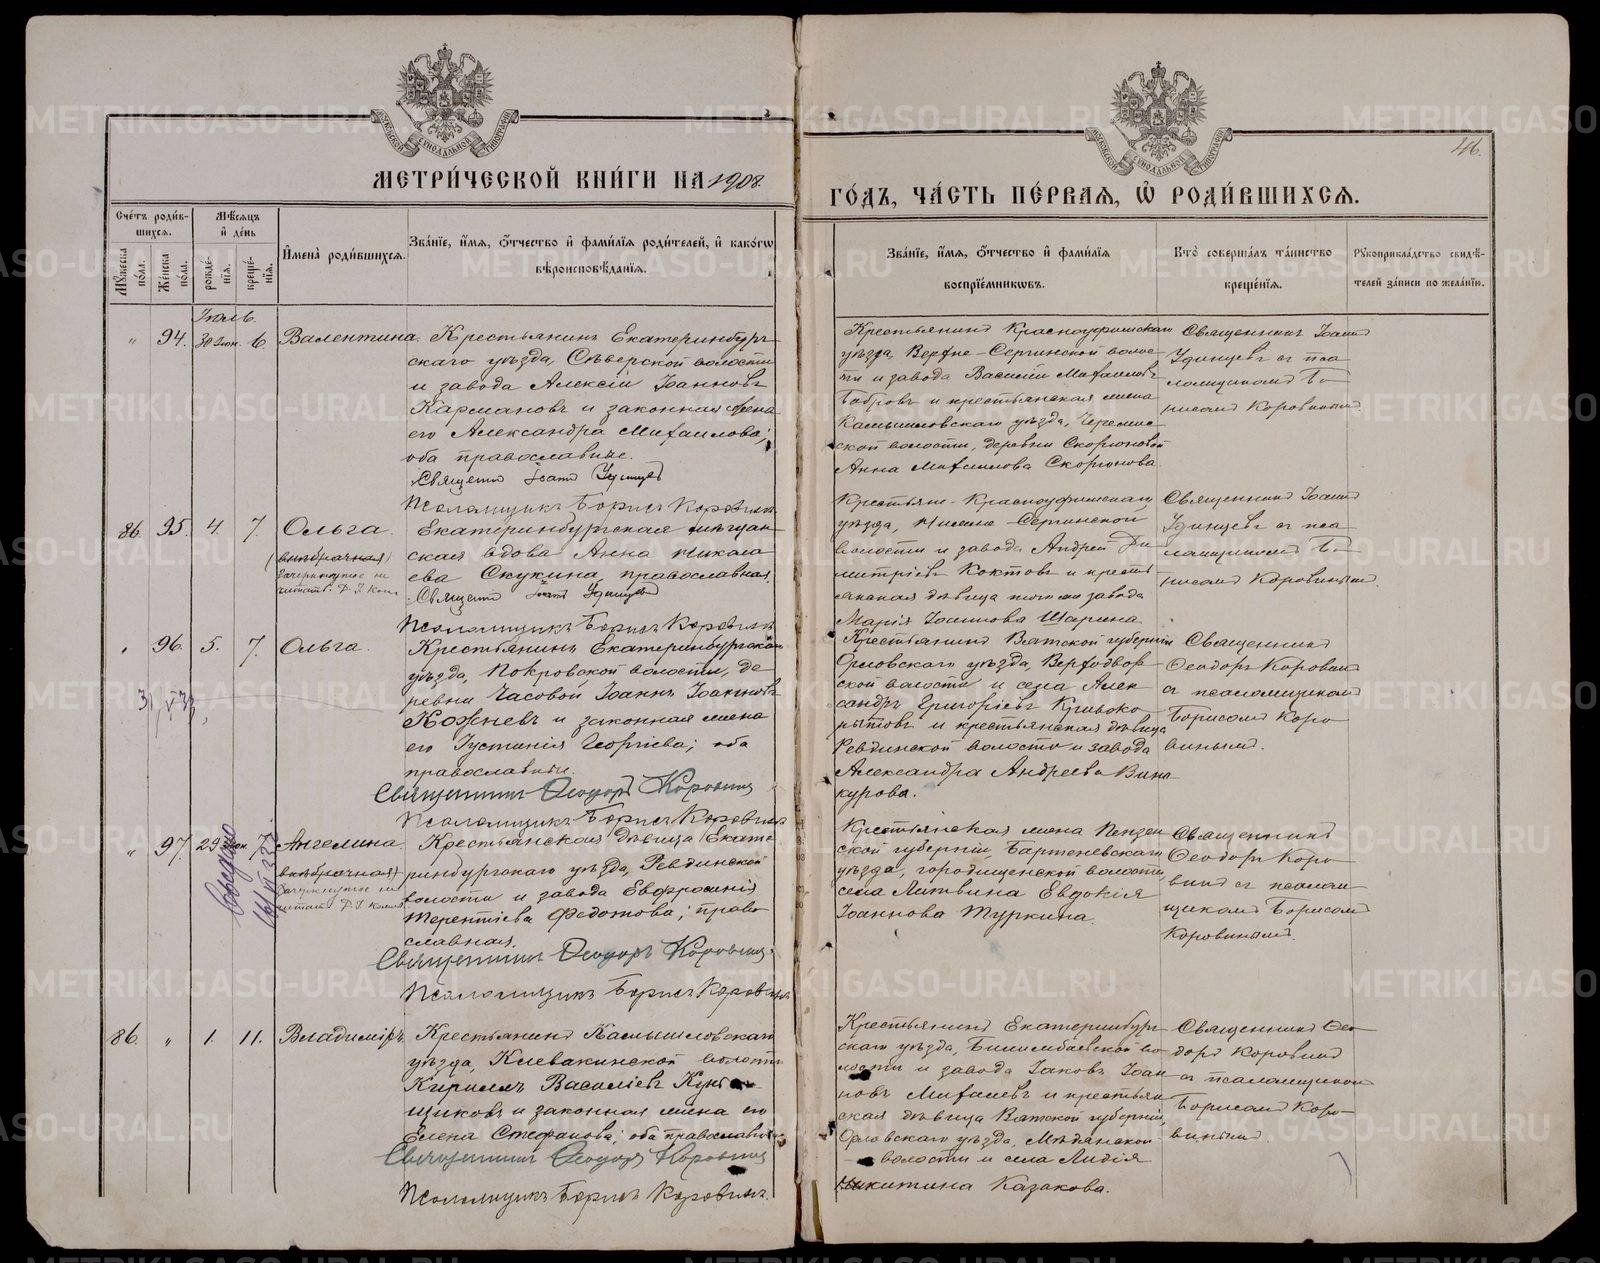 МЕТРИ́ЧЕСКОЙ КНИ́ГИ НА 1908.
ГО́ДЪ, ЧА́СТЬ ПЕ́РВАЯ, Ѡ҆ РОДИ́ВШИХСЯ.
46.
Сче́тъ роди́вшихся.
Мѣ́сяцъ и҆ де́нь
Мꙋ́жеска по́ла.
Же́нска по́ла.
рожде́нїѧ.
креще́нїѧ.
И҆мена̀ роди́вшихсѧ.
Зва́нїе, и҆́мѧ, ѻ҆́тчество и҆ фами́лїѧ роди́телей, и҆ како́гѡ
вѣроисповѣ́данїѧ.
Зва́нїе, и҆́мѧ, ѻ҆́тчество и҆ фами́лїѧ
воспрїе́мникѡвъ.
Кто̀ соверша́лъ та́инство
креще́нїѧ.
Рꙋкоприкла́дство свидѣ́-
телей за́писи по жела́нїю.
Іюль.
" 94. 30 Іюн. 6. Валентина.
Крестьянинъ Екатеринбург-
скаго уѣзда, Сѣверской волости
и завода Алексій Іоанновъ
Кармановъ и законная жена
его Александра Михаилова;
оба православные.
Священ. Іоаннъ Удинцевъ
Псаломщикъ Борисъ Коровинъ
Крестьянинъ Красноуфимскаго
уѣзда, Верхне-Сергинской волос-
ти и завода Василій Михаиловъ
Бобровъ и крестьянская жена
Камышловскаго уѣзда, Черемис-
ской волости, деревни Скорюновой
Анна Михаилова Скорюнова.
Священникъ Іоаннъ
Удинцевъ съ пса-
ломщикомъ Бо-
рисомъ Коровинымъ.
86. 95. 4. 7. Ольга.
(внѣбрачная)
Зачеркнутое не
читать.
Екатеринбургская мѣщан-
ская вдова Анна Никола-
ева Скукина, православная.
Священ. Іоаннъ Удинцевъ
Псаломщикъ Борисъ Коровинъ
Крестьяне Красноуфимскаго
уѣзда, Нижне-Сергинской
волости и завода Андрей Ди-
митріевъ Коктовъ и кресть-
янская дѣвица того же завода
Марія Іоакимова Шарина.
Священникъ Іоаннъ
Удинцевъ съ пса-
ломщикомъ Бо-
рисомъ Коровинымъ.
" 96. 5. 7. Ольга.
Крестьянинъ Екатеринбургскаго
уѣзда, Покровской волости, де-
ревни Часовой Іоаннъ Іоанновъ
Кожневъ и законная жена
его Іустинія Георгіева; оба
православные.
Священникъ Ѳеодоръ Коровинъ
Псаломщикъ Борисъ Коровинъ
Крестьянинъ Вятской губерніи
Орловскаго уѣзда, Верходвор-
ской волости и села Алек-
сандръ Григоріевъ Кривоко-
рытовъ и крестьянская дѣвица
Ревдинской волости и завода
Александра Андреева Вино-
курова.
Священникъ
Ѳеодоръ Коровинъ
съ псаломщикомъ
Борисомъ Коро-
винымъ.
" 97. 29 Іюн. 7. Ангелина.
(внѣбрачная)
Зачеркнутое не
читать
Крестьянская дѣвица Екате-
ринбургскаго уѣзда, Ревдинской
волости и завода Евфросинія
Терентіева Федотова; право-
славная.
Священникъ Ѳеодоръ Коровинъ
Псаломщикъ Борисъ Коровинъ
Крестьянская жена Пензен-
ской губерніи,
уѣзда, городищенской волости,
села Литвина Евдокія
Іоаннова Туркина.
Священникъ
Ѳеодоръ Коро-
винъ съ псалом-
щикомъ Борисомъ
Коровинымъ.
86. " 1. 11. Владиміръ.
Крестьянинъ Камышловскаго
уѣзда, Клевакинской волости
Кириллъ Василіевъ
щиковъ и законная жена его
Елена Стефанова; оба православные.
Священникъ Ѳеодоръ Коровинъ
Псаломщикъ Борисъ Коровинъ.
Крестьянинъ Екатеринбург-
скаго уѣзда, Билимбаевской во-
лости и завода Іаковъ Іоан-
новъ Михалевъ и крестьян-
ская дѣвица Вятской губерніи,
Орловскаго уѣзда, Медянской
волости и села Лидія
Никитина Казакова.
Священникъ Ѳео-
доръ Коровинъ
съ псаломщикомъ
Борисомъ Коро-
винымъ.
METRIKI.GASO-URAL.RU